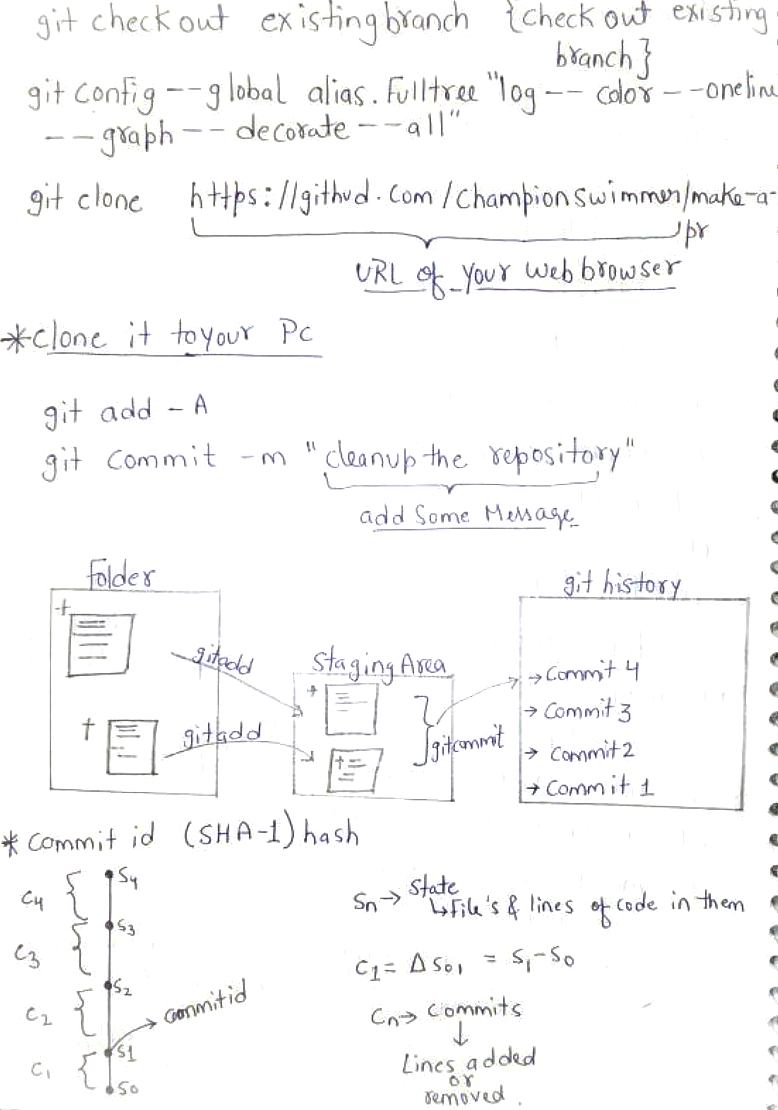 git checkout existingbranch {check out existing
branch}
git config --global alias.Fulltree "log -- color --oneline
--graph -- decorate --all"
git clone https://githud.com/championswimmer/make-a-
pr
URL of your web browser
*clone it to your Pc
git add -A
git commit -m "cleanup the repository"
add some Message
folder
git history
git add
Staging Area
git add
git commit
→ Commit 4
→ Commit 3
→ Commit 2
→ Commit 1
* Commit id (SHA-1) hash
C4
S4
C3
S3
C2
S2
commit id
C1
S1
S0
Sn → State
↳ File's & lines of code in them
C1 = ΔS01 = S1-S0
Cn → Commits
↓
Lines added
or
removed.